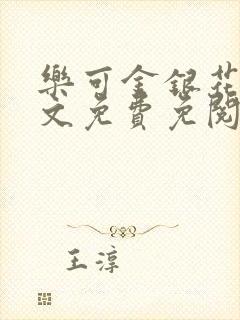 樂可金銀花
文免費免閱
王淳